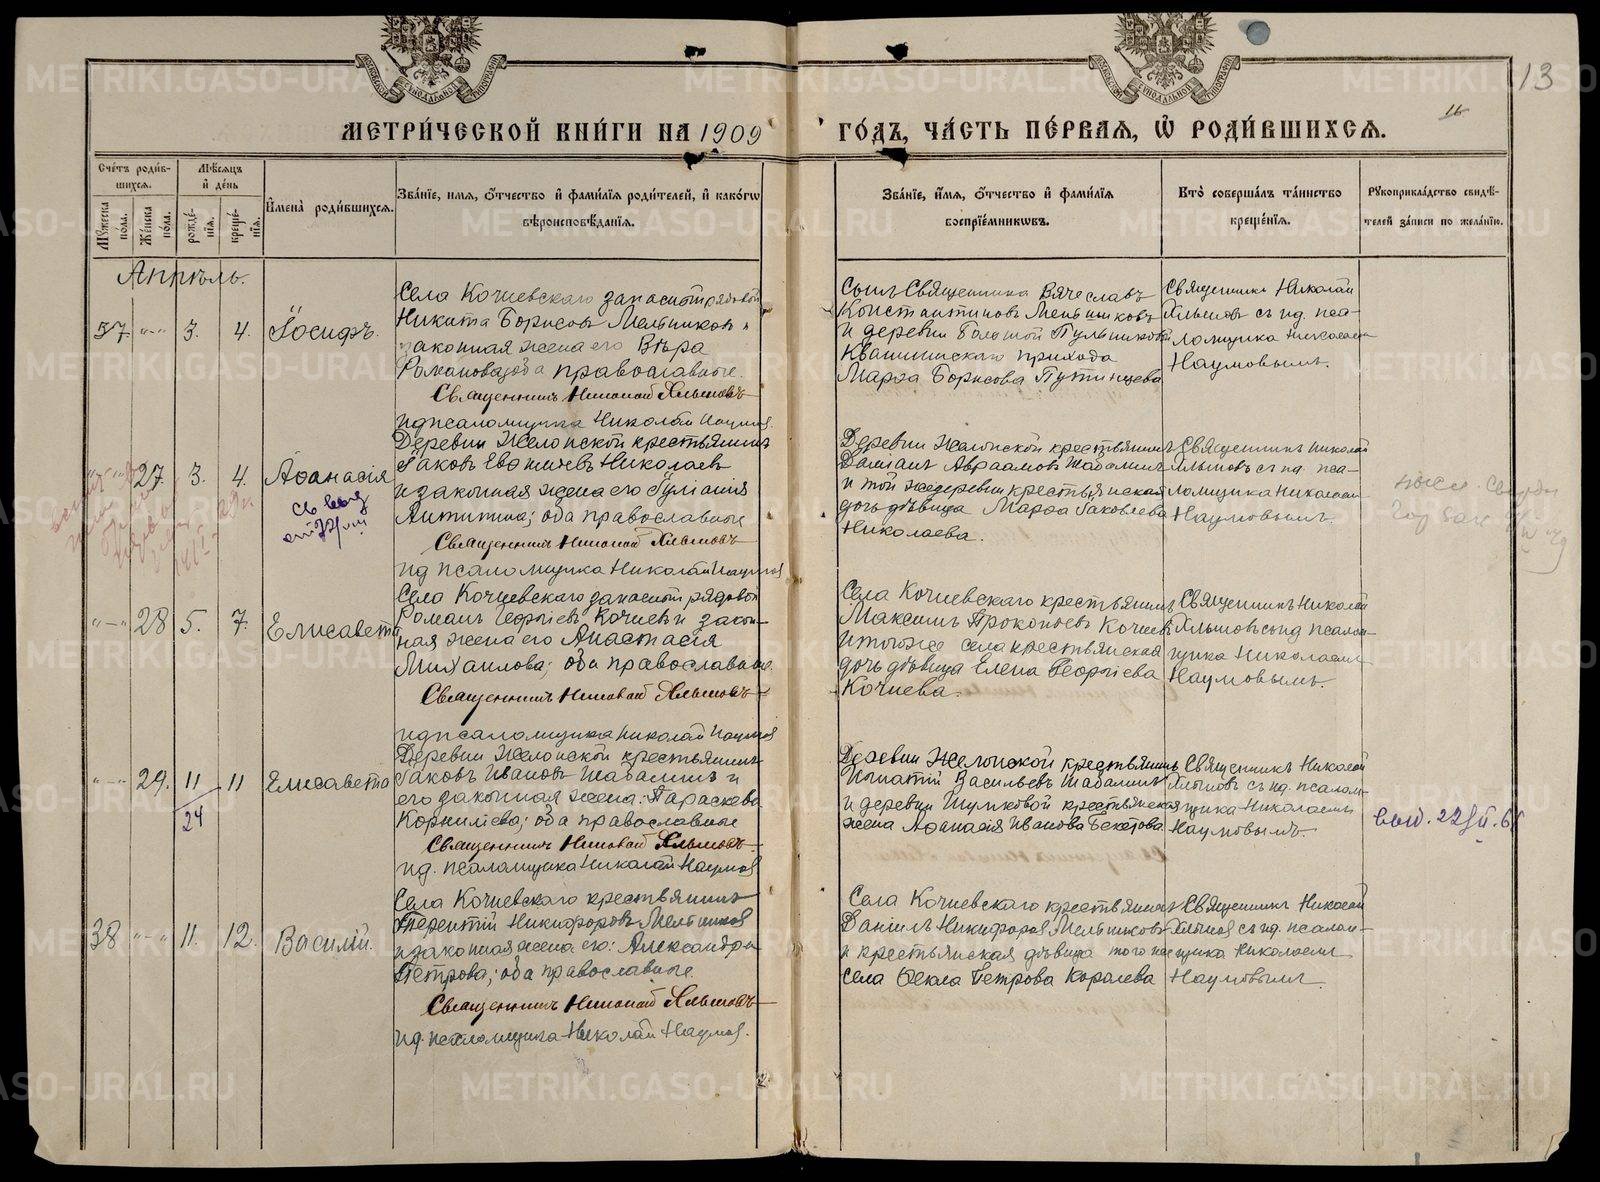 МЕТРИЧЕСКОЙ КНИГИ НА 1909
ГОДЪ, ЧАСТЬ ПЕРВАЯ, Ѡ РОДИВШИХСЯ.
13
Счетъ родившихся.
Мѣсяцъ и день
Имена родившихся.
Званіе, имя, отчество и фамилія родителей, и какогѡ
вѣроисповѣданія.
Званіе, имя, отчество и фамилія
воспріемниковъ.
Кто совершалъ таинство
крещенія.
Рукоприкладство свидѣ-
телей записи по желанію.
Мужеска пола.
Женска пола.
рожденія.
крещенія.
Апрѣль.
37. "—" 3. 4. Іосифъ.
Села Кочневскаго запасный рядовой
Никита Борисовъ Мельниковъ и
законная жена его Вѣра
Романова; оба православные.
Священникъ Николай
и д псаломщика Николай Наумовъ.
Сынъ Священника Вячеславъ
Константиновъ Мельниковъ
и деревни Большой Пульниковой
Квашнинскаго прихода
Марѳа Борисова Путинцева
Священникъ Николай
съ и д. пса-
ломщика Николаемъ
Наумовымъ.
"—" 27. 3. 4. Аѳанасія
Деревни Желонской крестьянинъ
Іаковъ Евѳиміевъ Николаевъ
и законная жена его Іуліанія
Антипина; оба православные
Священникъ Николай
и д псаломщика Николай Наумовъ
Деревни Желонской крестьянинъ
Даміанъ Авраамовъ Шабалинъ
и той же деревни крестьянская
дочь дѣвица Марѳа Іаковлева
Николаева.
Священникъ Николай
съ и д. пса-
ломщика Николаемъ
Наумовымъ.
"—" 28 5. 7. Елисавета
Села Кочневскаго запасный рядовой
Романъ Георгіевъ Кочневъ и закон-
ная жена его Анастасія
Михаилова; оба православные.
Священникъ Николай
и д псаломщика Николай Наумовъ
Села Кочневскаго крестьянинъ
Максимъ Прокопьевъ Кочневъ
и того же села крестьянская
дочь дѣвица Елена Георгіева
Кочнева.
Священникъ Николай
съ и д псалом-
щика Николаемъ
Наумовымъ.
"—" 29. 11 11 Елисавета
24
Деревни Желонской крестьянинъ
Іаковъ Ивановъ Шабалинъ и
его законная жена: Параскева
Корниліева; оба православные
Священникъ Николай
и д. псаломщика Николай Наумовъ
Деревни Желонской крестьянинъ
Игнатій Васильевъ Шабалинъ
и деревни Шумковой крестьянская
жена Аѳанасія Иванова Бекетова
Священникъ Николай
съ и д. псалом-
щика Николаемъ
Наумовымъ.
38 "—" 11. 12. Василій.
Села Кочневскаго крестьянинъ
Терентій Никифоровъ Мельниковъ
и законная жена его: Александра
Петрова; оба православные.
Священникъ Николай
и д. псаломщика Николай Наумовъ.
Села Кочневскаго крестьянинъ
Даніилъ Никифоровъ Мельниковъ
и крестьянская дѣвица того же
села Ѳекла Петрова Королева
Священникъ Николай
съ и д. псалом-
щика Николаемъ
Наумовымъ.
METRIKI.GASO-URAL.RU